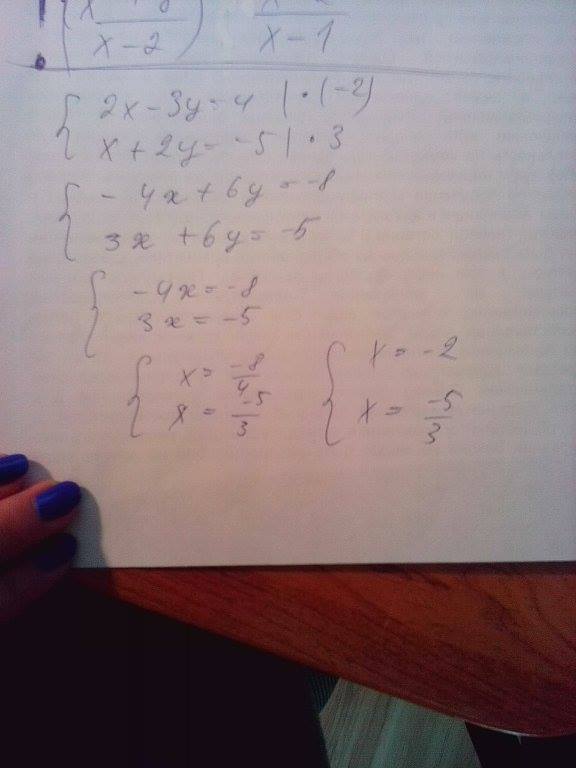 x - 2
x - 1
2x - 3y = 4 | · (-2)
x + 2y = -5 | · 3
- 4x + 6y = -8
3x + 6y = -5
-4x = -8
3x = -5
x = -8/4
x = -5/3
x = -2
x = -5/3